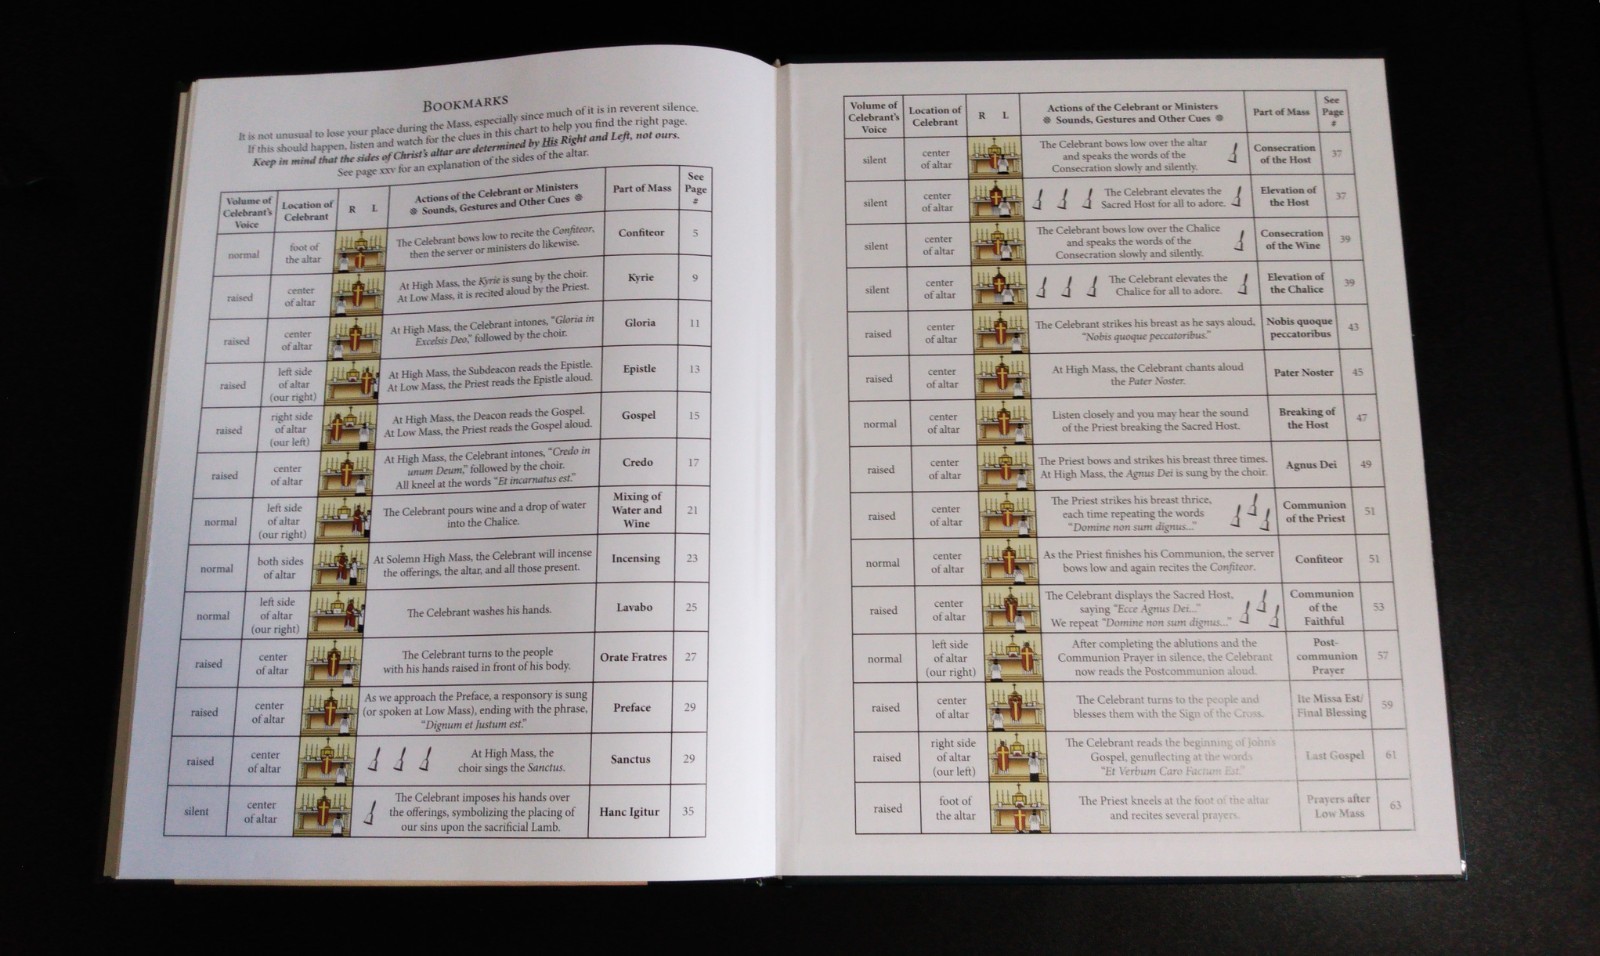 BOOKMARKS
It is not unusual to lose your place during the Mass, especially since much of it is in reverent silence.
If this should happen, listen and watch for the clues in this chart to help you find the right page.
Keep in mind that the sides of Christ's altar are determined by His Right and Left, not ours.
See page xxv for an explanation of the sides of the altar.
Volume of Celebrant's Voice
Location of Celebrant
R L
Actions of the Celebrant or Ministers
❊ Sounds, Gestures and Other Cues ❊
Part of Mass
See Page #
normal
foot of
the altar
The Celebrant bows low to recite the Confiteor,
then the server or ministers do likewise.
Confiteor
5
raised
center
of altar
At High Mass, the Kyrie is sung by the choir.
At Low Mass, it is recited aloud by the Priest.
Kyrie
9
raised
center
of altar
At High Mass, the Celebrant intones, "Gloria in
Excelsis Deo," followed by the choir.
Gloria
11
raised
left side
of altar
(our right)
At High Mass, the Subdeacon reads the Epistle.
At Low Mass, the Priest reads the Epistle aloud.
Epistle
13
raised
right side
of altar
(our left)
At High Mass, the Deacon reads the Gospel.
At Low Mass, the Priest reads the Gospel aloud.
Gospel
15
raised
center
of altar
At High Mass, the Celebrant intones, "Credo in
unum Deum," followed by the choir.
All kneel at the words "Et incarnatus est."
Credo
17
normal
left side
of altar
(our right)
The Celebrant pours wine and a drop of water
into the Chalice.
Mixing of
Water and
Wine
21
normal
both sides
of altar
At Solemn High Mass, the Celebrant will incense
the offerings, the altar, and all those present.
Incensing
23
normal
left side
of altar
(our right)
The Celebrant washes his hands.
Lavabo
25
raised
center
of altar
The Celebrant turns to the people
with his hands raised in front of his body.
Orate Fratres
27
raised
center
of altar
As we approach the Preface, a responsory is sung
(or spoken at Low Mass), ending with the phrase,
"Dignum et Justum est."
Preface
29
raised
center
of altar
At High Mass, the
choir sings the Sanctus.
Sanctus
29
silent
center
of altar
The Celebrant imposes his hands over
the offerings, symbolizing the placing of
our sins upon the sacrificial Lamb.
Hanc Igitur
35
Volume of Celebrant's Voice
Location of Celebrant
R L
Actions of the Celebrant or Ministers
❊ Sounds, Gestures and Other Cues ❊
Part of Mass
See Page #
silent
center
of altar
The Celebrant bows low over the altar
and speaks the words of the
Consecration slowly and silently.
Consecration
of the Host
37
silent
center
of altar
The Celebrant elevates the
Sacred Host for all to adore.
Elevation of
the Host
37
silent
center
of altar
The Celebrant bows low over the Chalice
and speaks the words of the
Consecration slowly and silently.
Consecration
of the Wine
39
silent
center
of altar
The Celebrant elevates the
Chalice for all to adore.
Elevation of
the Chalice
39
raised
center
of altar
The Celebrant strikes his breast as he says aloud,
"Nobis quoque peccatoribus."
Nobis quoque
peccatoribus
43
raised
center
of altar
At High Mass, the Celebrant chants aloud
the Pater Noster.
Pater Noster
45
normal
center
of altar
Listen closely and you may hear the sound
of the Priest breaking the Sacred Host.
Breaking of
the Host
47
raised
center
of altar
The Priest bows and strikes his breast three times.
At High Mass, the Agnus Dei is sung by the choir.
Agnus Dei
49
raised
center
of altar
The Priest strikes his breast thrice,
each time repeating the words
"Domine non sum dignus..."
Communion
of the Priest
51
normal
center
of altar
As the Priest finishes his Communion, the server
bows low and again recites the Confiteor.
Confiteor
51
raised
center
of altar
The Celebrant displays the Sacred Host,
saying "Ecce Agnus Dei..."
We repeat "Domine non sum dignus..."
Communion
of the
Faithful
53
normal
left side
of altar
(our right)
After completing the ablutions and the
Communion Prayer in silence, the Celebrant
now reads the Postcommunion aloud.
Post-
communion
Prayer
57
raised
center
of altar
The Celebrant turns to the people and
blesses them with the Sign of the Cross.
Ite Missa Est/
Final Blessing
59
raised
right side
of altar
(our left)
The Celebrant reads the beginning of John's
Gospel, genuflecting at the words
"Et Verbum Caro Factum Est."
Last Gospel
61
raised
foot of
the altar
The Priest kneels at the foot of the altar
and recites several prayers.
Prayers after
Low Mass
63